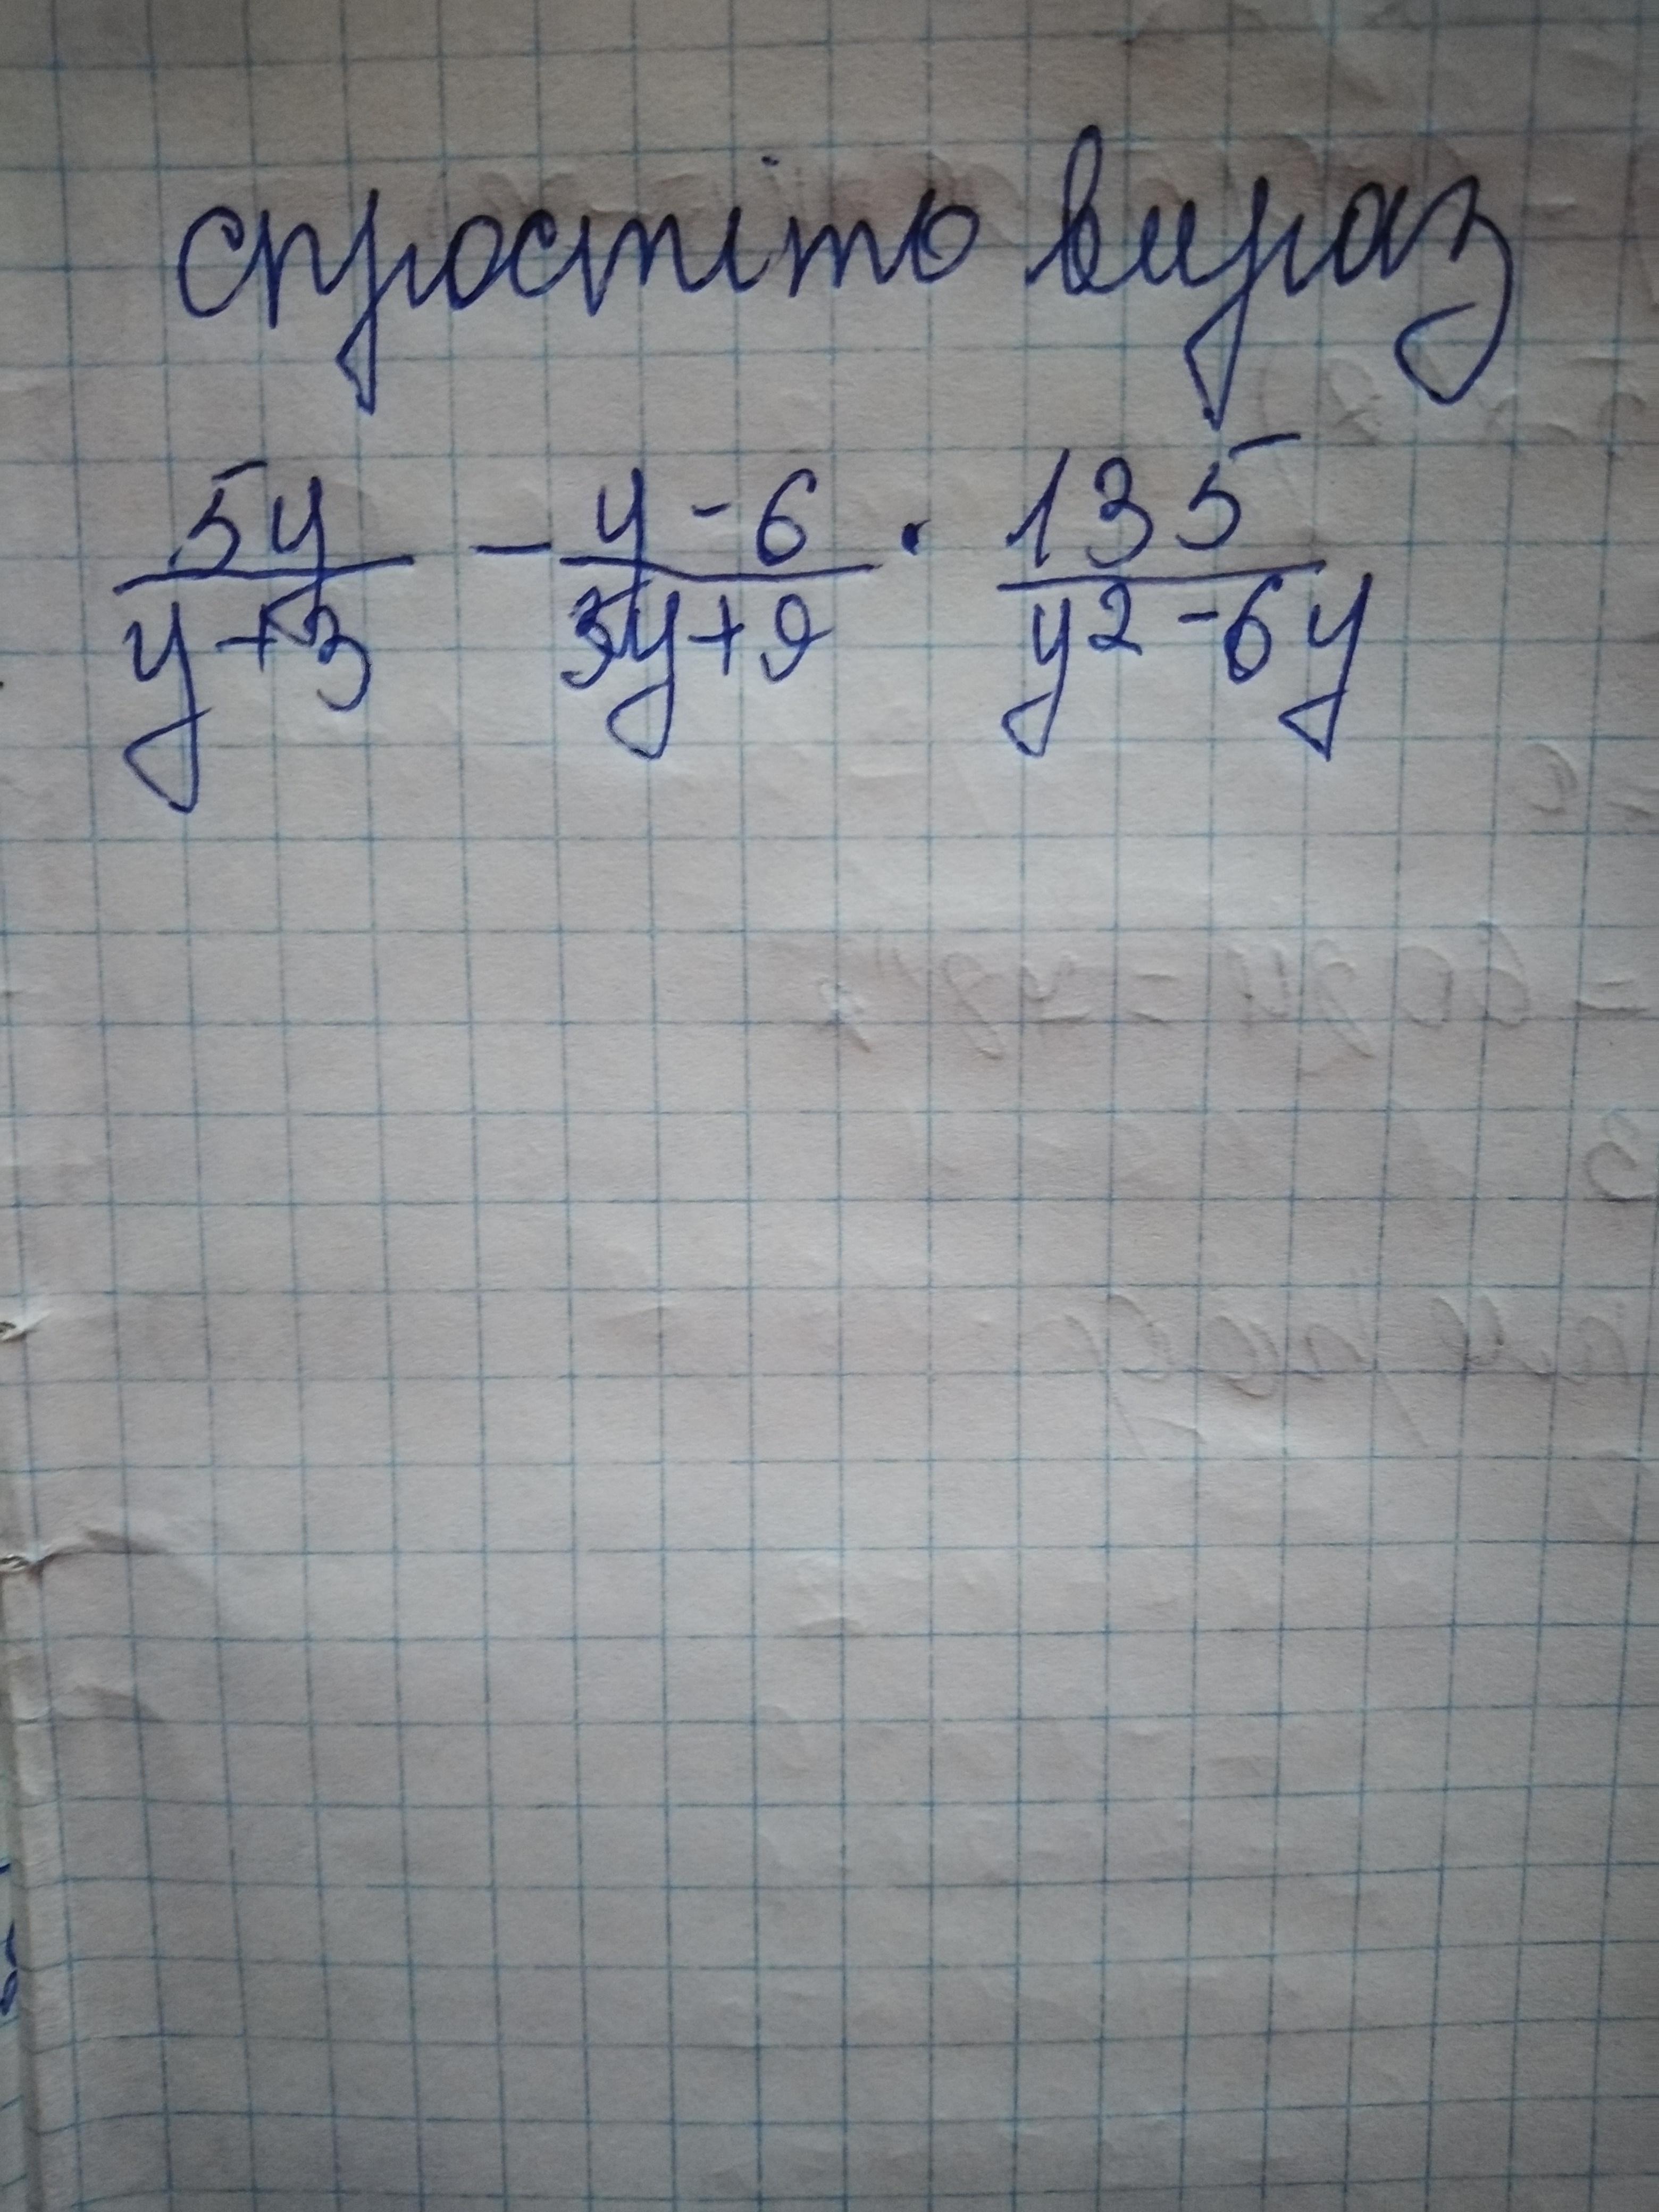 спростіть вираз
5y/(y+3) - (y-6)/(3y+9) · 135/(y2-6y)